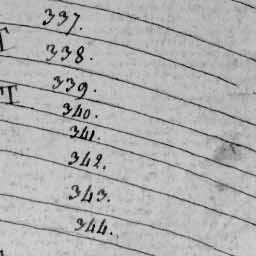 337.
T 338.
339.
T 340.
341.
342.
343.
344.